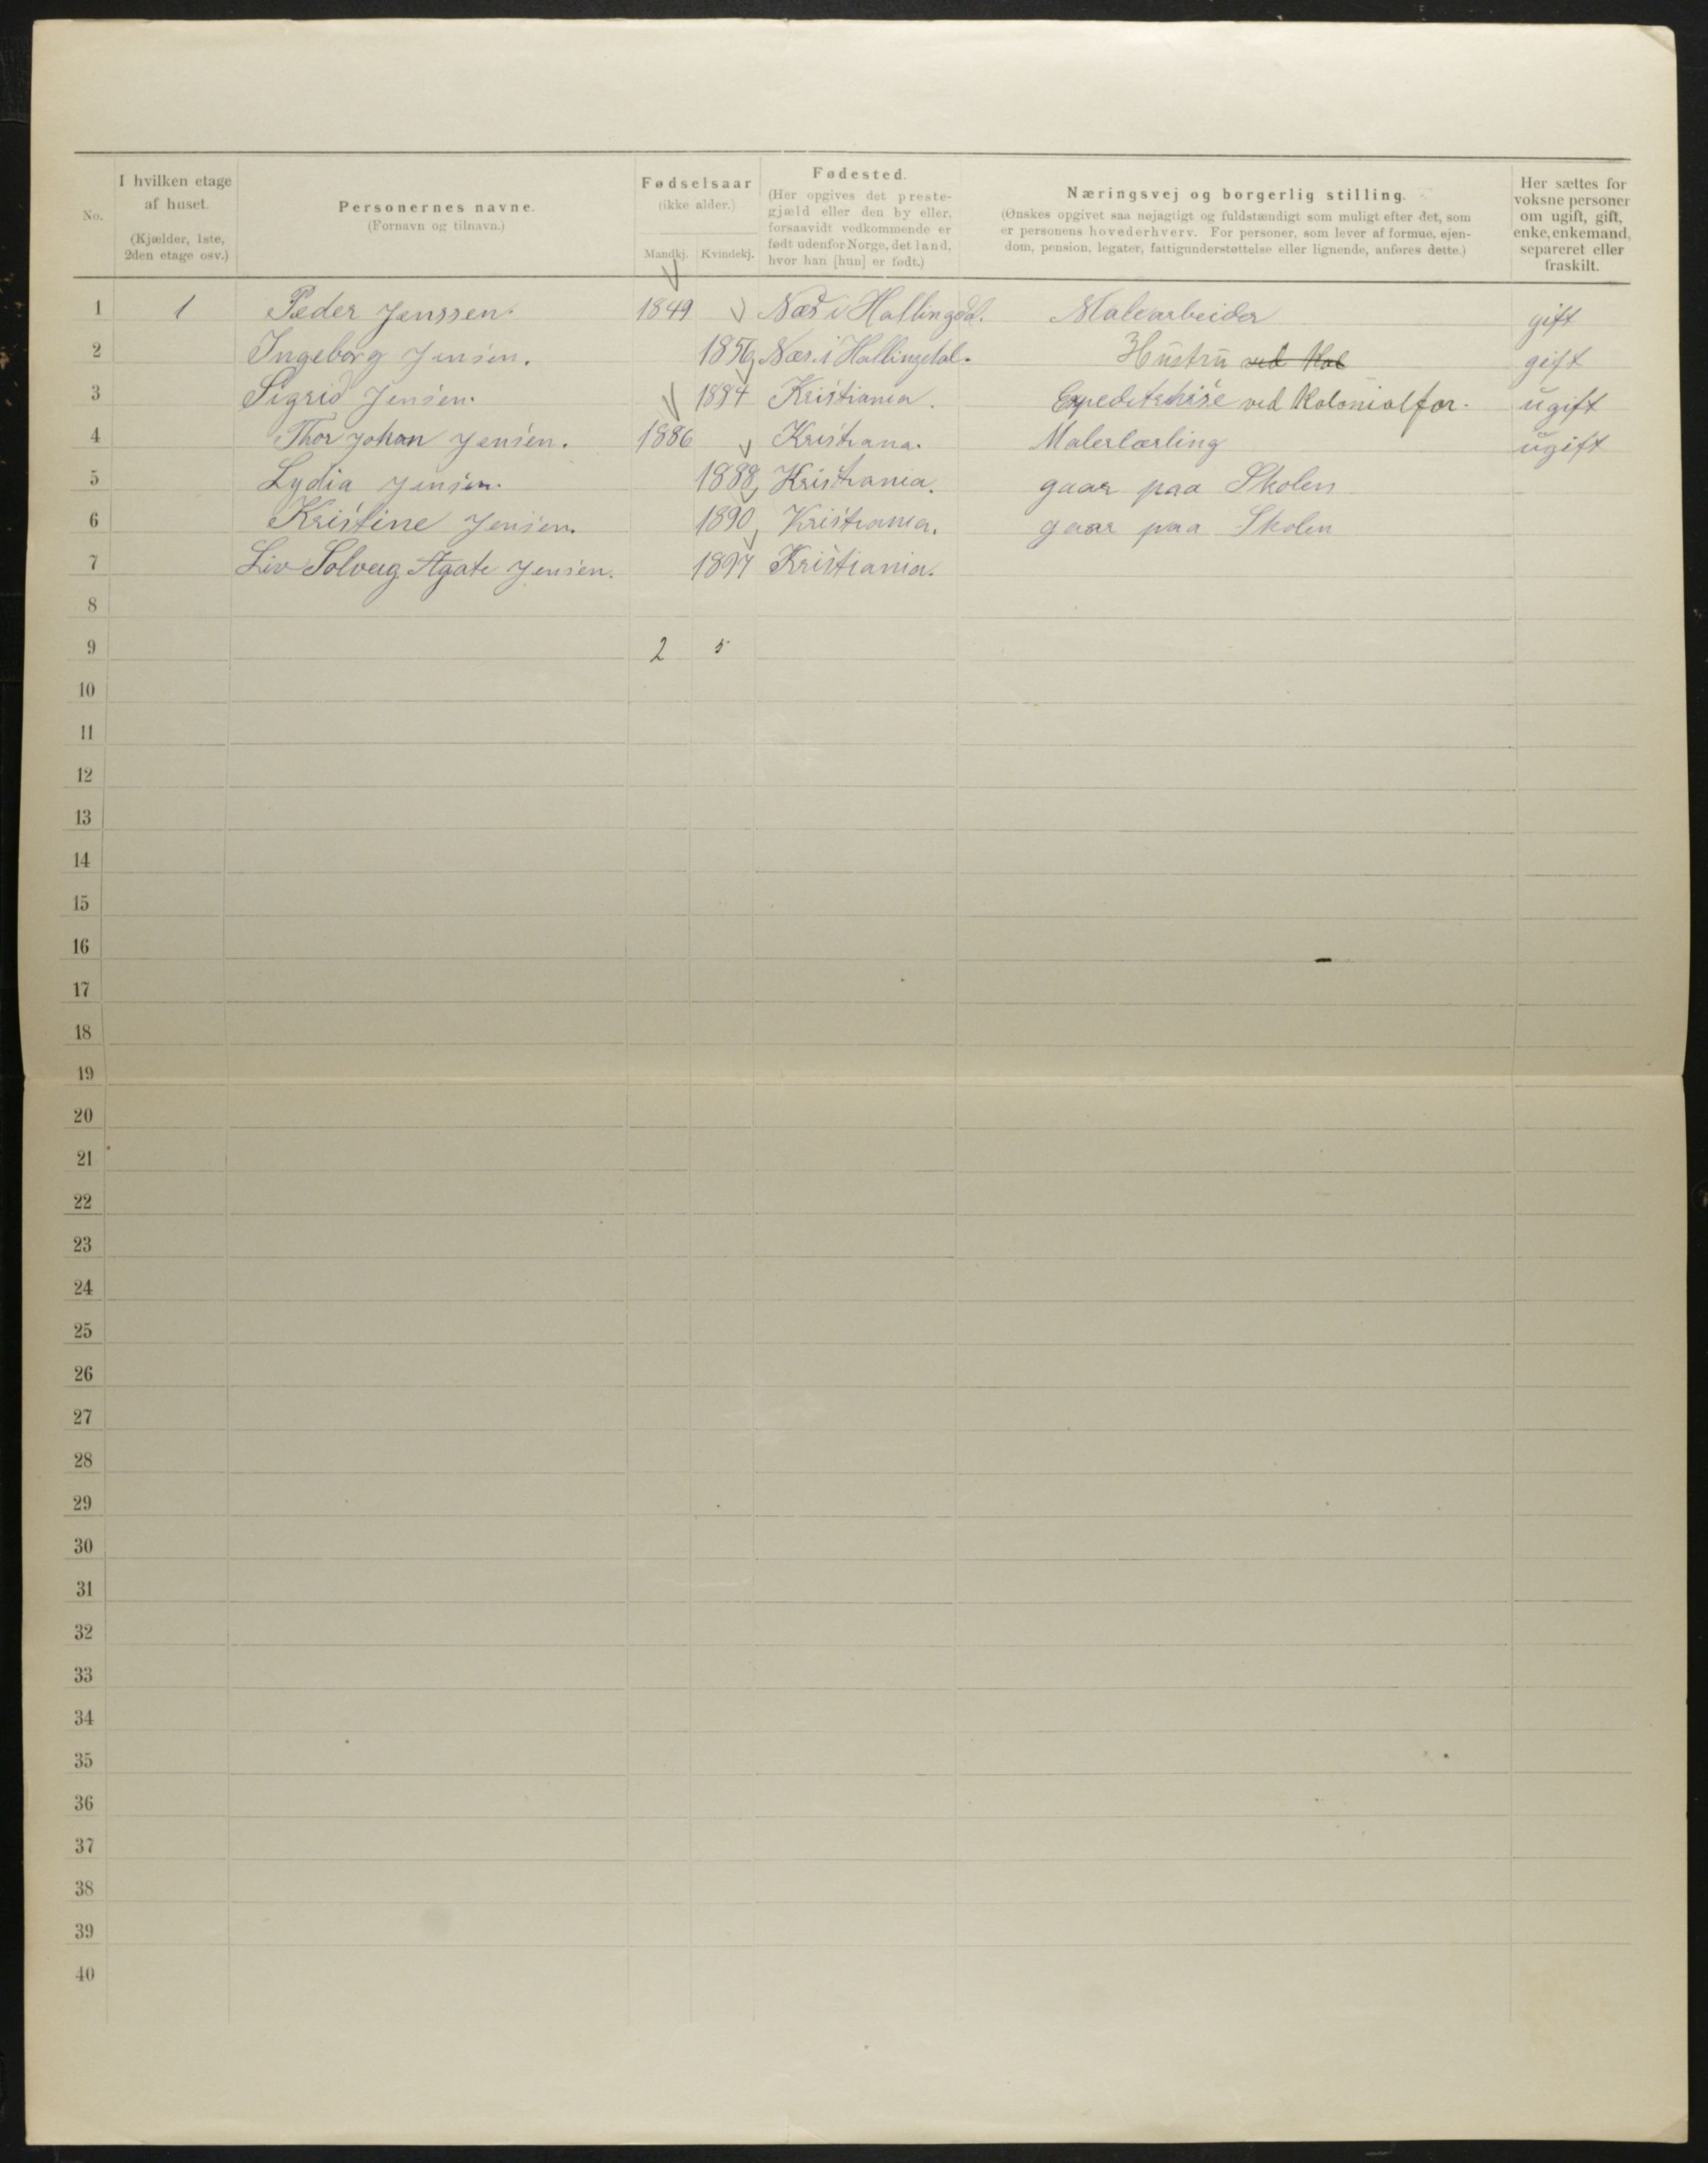 No.
I hvilken etage af huset. (Kjælder, 1ste, 2den etage osv.)
Personernes navne. (Fornavn og tilnavn.)
Fødselsaar (ikke alder.) Mandkj. Kvindekj.
Fødested. (Her opgives det prestegjæld eller den by eller, forsaavidt vedkommende er født udenfor Norge, det land, hvor han [hun] er født.)
Næringsvej og borgerlig stilling. (Ønskes opgivet saa nøjagtigt og fuldstændigt som muligt efter det, som er personens hovederhverv. For personer, som lever af formue, ejendom, pension, legater, fattigunderstøttelse eller lignende, anføres dette.)
Her sættes for voksne personer om ugift, gift, enke, enkemand, separeret eller fraskilt.
1 1 Peder Jenssen. 1849 Næs i Hallingdal. Malearbeider gift
2 Ingeborg Jensen. 1856 Næs. i Hallingdal. Hustru ved Kol gift
3 Sigrid Jensen. 1884 Kristiania. ved Kolonialfor. ugift
4 Thor Johan Jensen. 1886 Kristiana. Malerlærling ugift
5 Lydia Jensen. 1888 Kristiania. gaar paa Skolen
6 Kristine Jensen. 1890 Kristiania. gaar paa Skolen
7 Liv Solveig Agate Jensen. 1897 Kristiania.
8
9 2 5
10
11
12
13
14
15
16
17
18
19
20
21
22
23
24
25
26
27
28
29
30
31
32
33
34
35
36
37
38
39
40